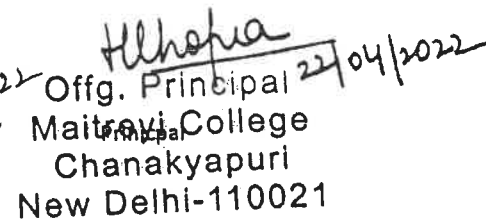 22/04/2022
Offg. Principal
Maitreyi College
Principal
Chanakyapuri
New Delhi-110021